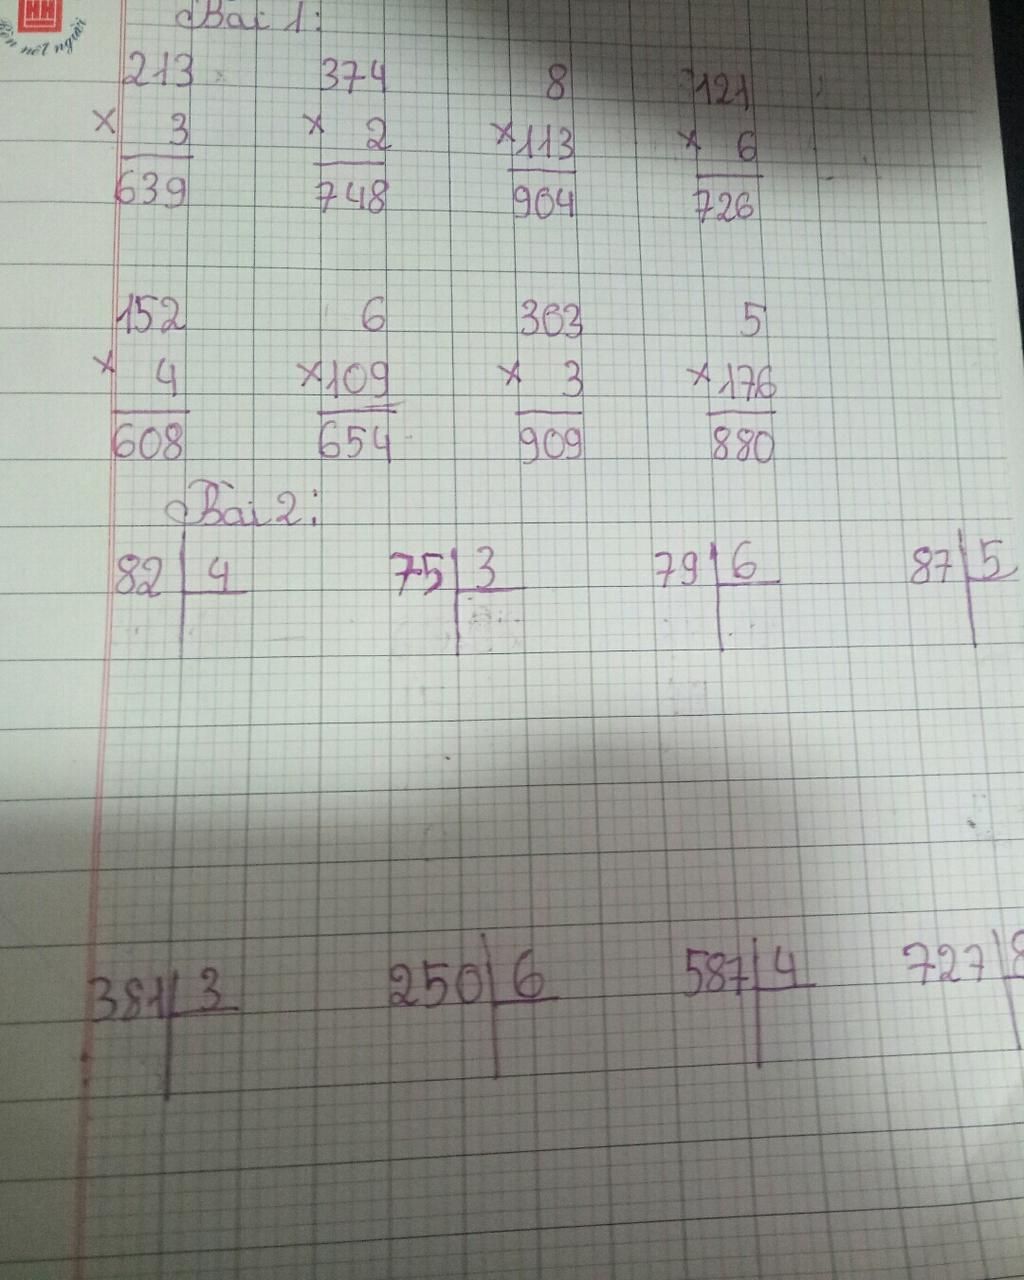 HH
nét người
Bài 1:
213 374 8 121
× 3 × 2 ×113 × 6
639 748 904 726
152 6 303 5
× 4 ×109 × 3 ×176
608 654 909 880
Bài 2:
82 4 75 3 79 6 87 5
381 3 250 6 587 4 727 8